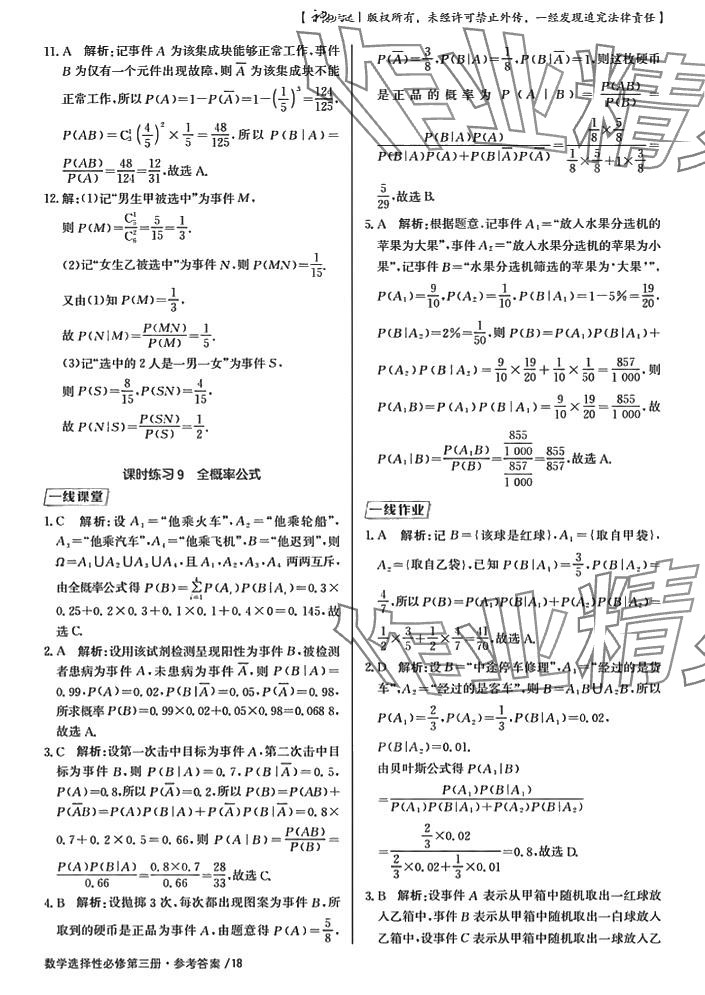 【 版权所有，未经许可禁止外传，一经发现追究法律责任】
11. A 解析:记事件 A 为该集成块能够正常工作,事件
B 为仅有一个元件出现故障,则 A̅ 为该集成块不能
正常工作,所以 P(A)=1-P(A̅)=1-(1/5)³=124/125,
P(AB)=C₃¹(4/5)²×1/5=48/125,所以 P(B|A)=
P(AB)/P(A)=48/124=12/31,故选 A.
12. 解:(1)记“男生甲被选中”为事件 M,
则 P(M)=C₅¹/C₆²=5/15=1/3.
(2)记“女生乙被选中”为事件 N,则 P(MN)=1/15.
又由(1)知 P(M)=1/3,
故 P(N|M)=P(MN)/P(M)=1/5.
(3)记“选中的 2 人是一男一女”为事件 S,
则 P(S)=8/15,P(SN)=4/15,
故 P(N|S)=P(SN)/P(S)=1/2.
课时练习 9 全概率公式
一线课堂
1. C 解析:设 A₁=“他乘火车”,A₂=“他乘轮船”,
A₃=“他乘汽车”,A₄=“他乘飞机”,B=“他迟到”,则
Ω=A₁∪A₂∪A₃∪A₄,且 A₁,A₂,A₃,A₄ 两两互斥,
由全概率公式得 P(B)=∑⁴ᵢ₌₁P(Aᵢ)P(B|Aᵢ)=0.3×
0.25+0.2×0.3+0.1×0.1+0.4×0=0.145,故
选 C.
2. A 解析:设用该试剂检测呈现阳性为事件 B,被检测
者患病为事件 A,未患病为事件 A̅,则 P(B|A)=
0.99,P(A)=0.02,P(B|A̅)=0.05,P(A̅)=0.98,
所求概率 P(B)=0.99×0.02+0.05×0.98=0.068 8,
故选 A.
3. C 解析:设第一次击中目标为事件 A,第二次击中目
标为事件 B,则 P(B|A)=0.7,P(B|A̅)=0.5,
P(A)=0.8,所以 P(A̅)=0.2,所以 P(B)=P(AB)+
P(A̅B)=P(A)P(B|A)+P(A̅)P(B|A̅)=0.8×
0.7+0.2×0.5=0.66,则 P(A|B)=P(AB)/P(B)=
P(A)P(B|A)/0.66=0.8×0.7/0.66=28/33,故选 C.
4. B 解析:设抛掷 3 次,每次都出现图案为事件 B,所
取到的硬币是正品为事件 A,由题意得 P(A)=5/8,
P(A̅)=3/8,P(B|A)=1/8,P(B|A̅)=1,则这枚硬币
是正品的概率为 P(A|B)=P(AB)/P(B)=
P(B|A)P(A)/(P(B|A)P(A)+P(B|A̅)P(A̅))=(1/8×5/8)/(1/8×5/8+1×3/8)=
5/29,故选 B.
5. A 解析:根据题意,记事件 A₁=“放入水果分选机的
苹果为大果”,事件 A₂=“放入水果分选机的苹果为小
果”,记事件 B=“水果分选机筛选的苹果为‘大果’”,
P(A₁)=9/10,P(A₂)=1/10,P(B|A₁)=1-5%=19/20,
P(B|A₂)=2%=1/50,则 P(B)=P(A₁)P(B|A₁)+
P(A₂)P(B|A₂)=9/10×19/20+1/10×1/50=857/1 000,则
P(A₁B)=P(A₁)P(B|A₁)=9/10×19/20=855/1 000,故
P(A₁|B)=P(A₁B)/P(B)=(855/1 000)/(857/1 000)=855/857,故选 A.
一线作业
1. A 解析:记 B={该球是红球},A₁={取自甲袋},
A₂={取自乙袋},已知 P(B|A₁)=3/5,P(B|A₂)=
4/7,所以 P(B)=P(A₁)P(B|A₁)+P(A₂)P(B|A₂)=
1/2×3/5+1/2×4/7=41/70,故选 A.
2. D 解析:设 B=“中途停车修理”,A₁=“经过的是货
车”,A₂=“经过的是客车”,则 B=A₁B∪A₂B,所以
P(A₁)=2/3,P(A₂)=1/3,P(B|A₁)=0.02,
P(B|A₂)=0.01.
由贝叶斯公式得 P(A₁|B)
=P(A₁)P(B|A₁)/(P(A₁)P(B|A₁)+P(A₂)P(B|A₂))
=(2/3×0.02)/(2/3×0.02+1/3×0.01)=0.8,故选 D.
3. B 解析:设事件 A 表示从甲箱中随机取出一红球放
入乙箱中,事件 B 表示从甲箱中随机取出一白球放入
乙箱中,设事件 C 表示从甲箱中随机取出一球放入乙
数学选择性必修第三册·参考答案/18
作业精
作业精